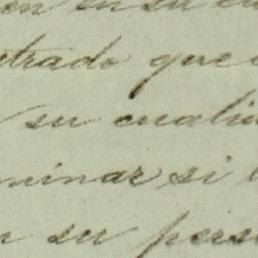 en su
trado que
su cuali
minar si
su perso